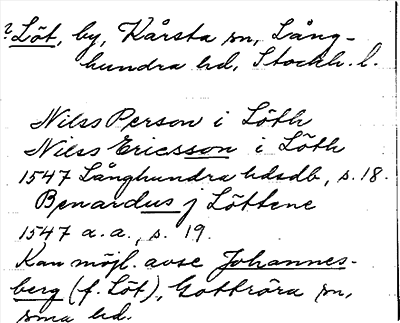 ? Löt, by, Kårsta sn, Lång-
hundra hd, Stockh. l.
Nilss Person i Löth
Nilss Ericsson i Löth
1547 Långhundra hdsdb, s. 18.
Benardus j Löttene
1547 a. a., s. 19.
Kan möjl. avse Johannes-
berg (f. Löt), Gottröra sn,
sma hd.